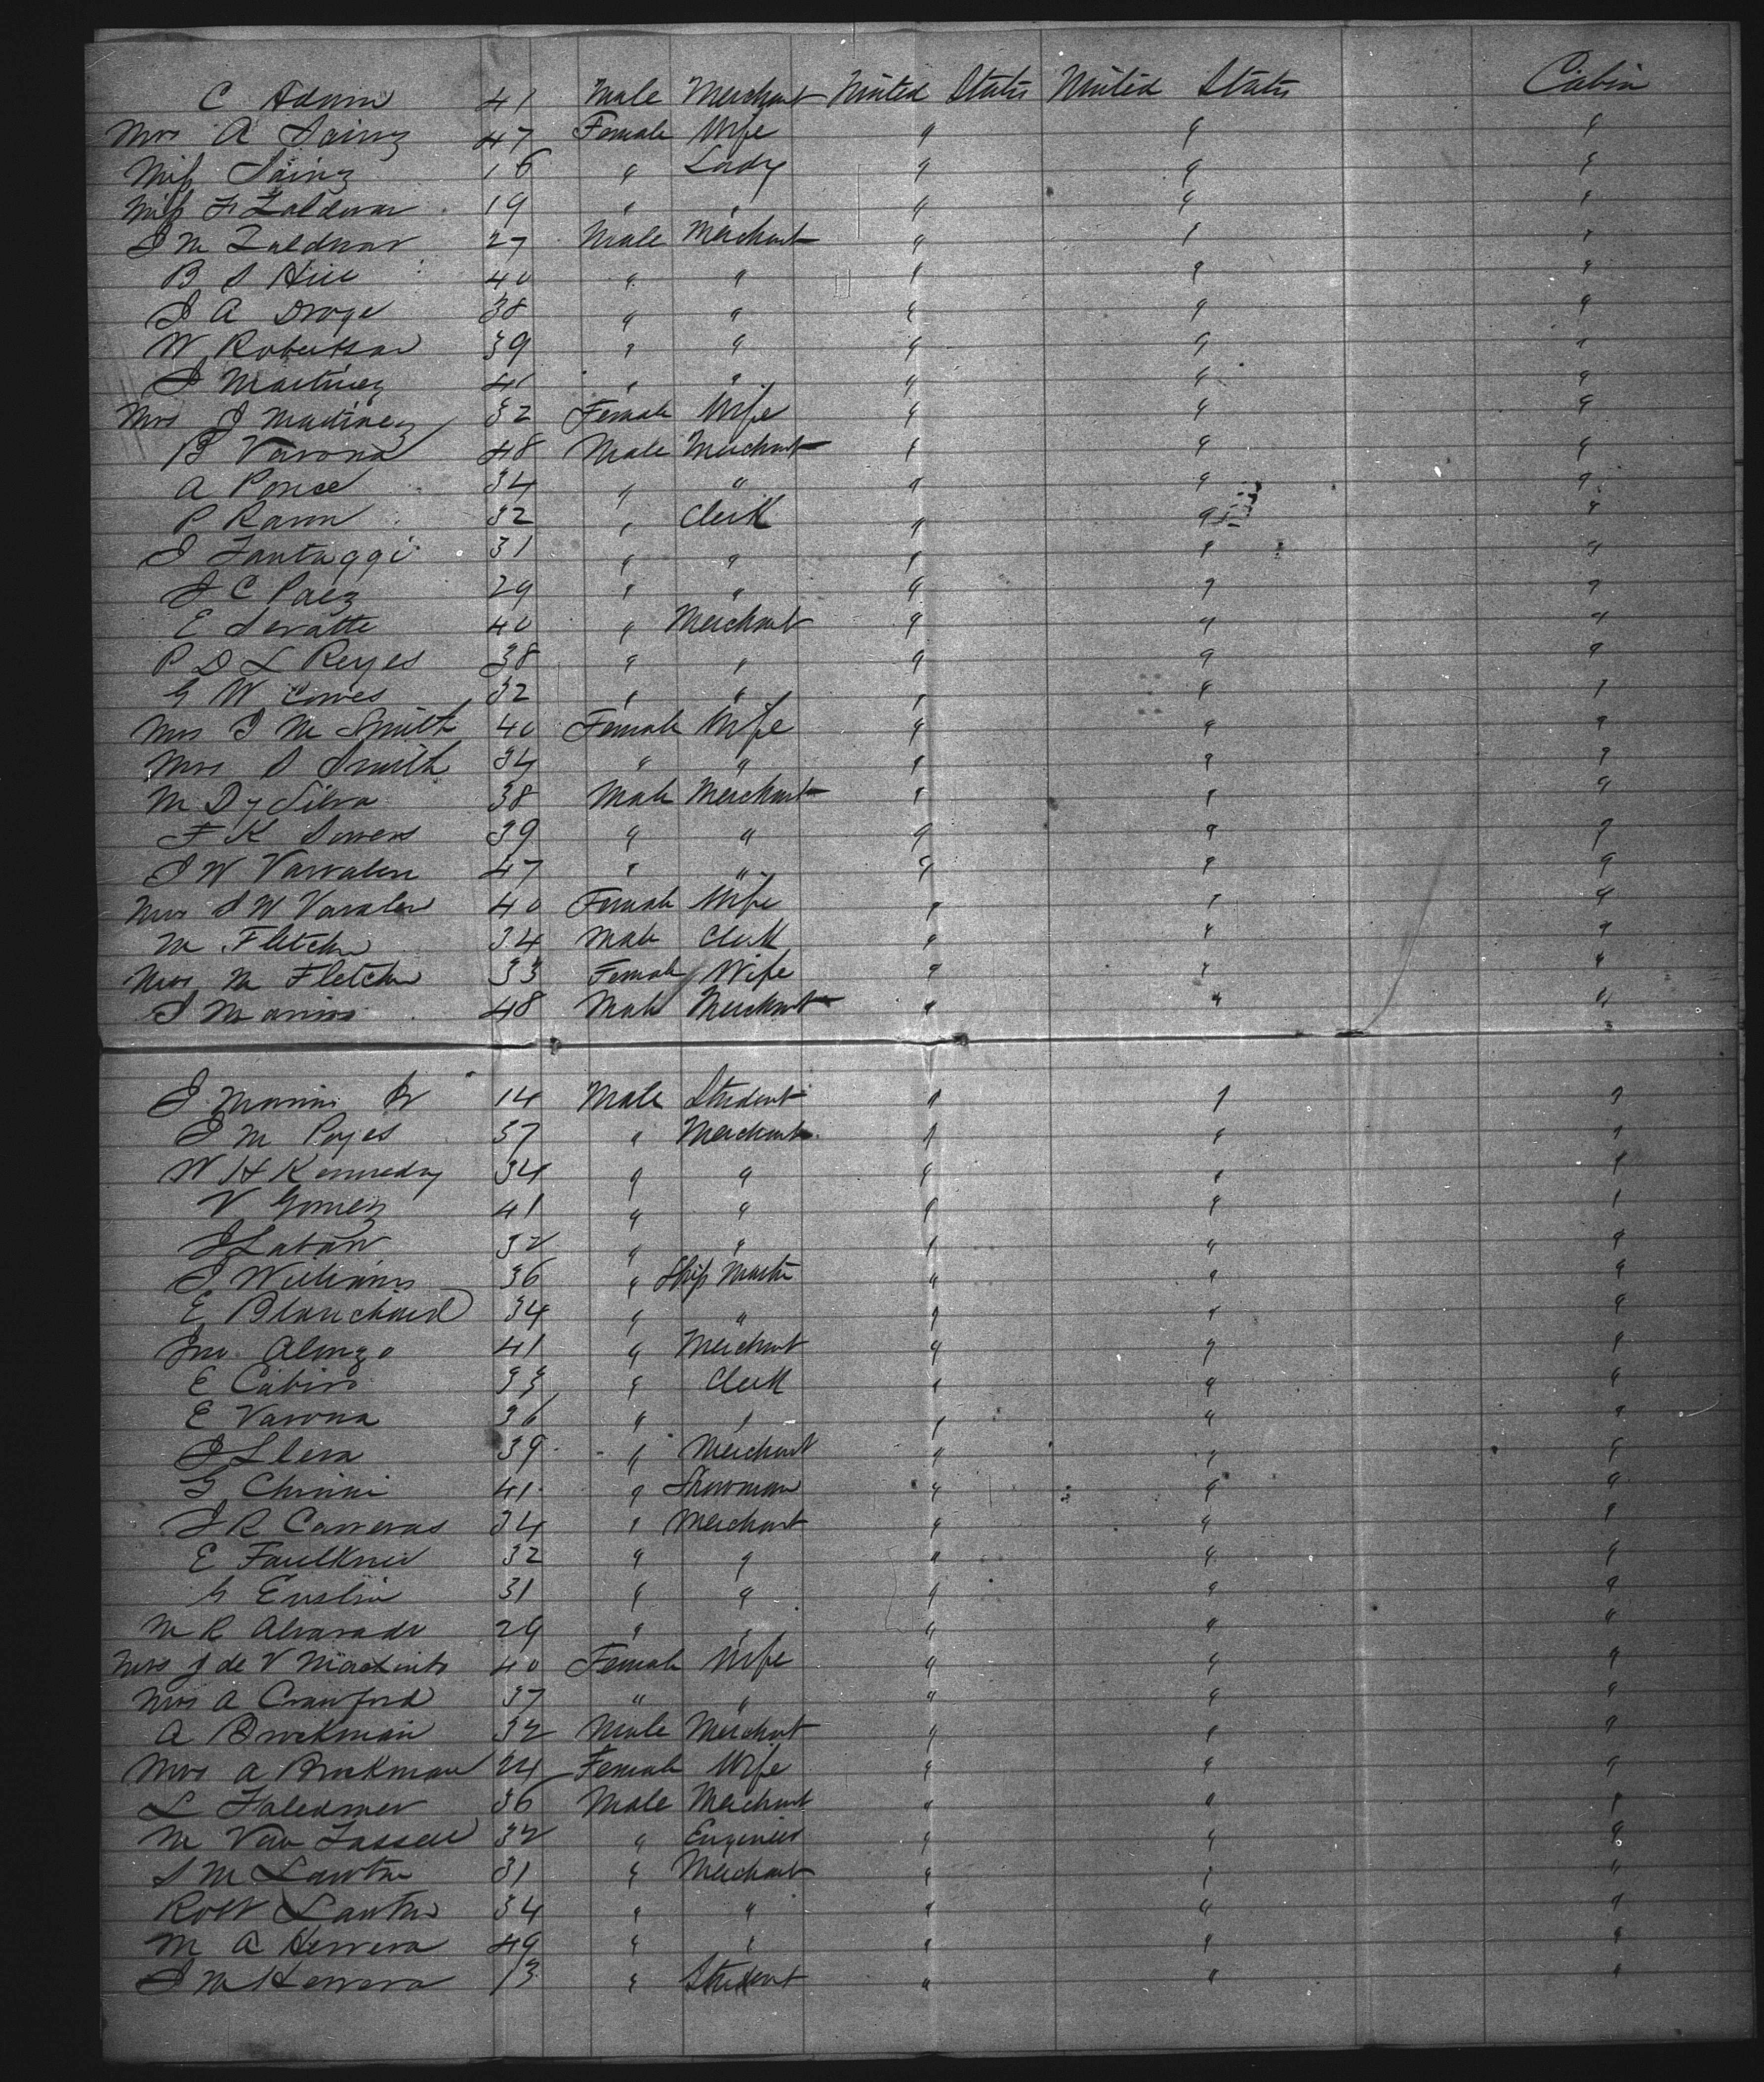 C Adwin 41 Male Merchant United States United States Cabin
Mrs A Sainz 47 Female Wife " " "
Miss Sainz 16 " Lady " " "
Miss F Zaldivar 19 " " " " "
J M Zaldivar 27 Male Merchant " " "
B S Hill 40 " " " " "
J A Droge 38 " " " " "
W Robertson 39 " " " " "
J Martinez 41 " " " " "
Mrs J Martinez 32 Female Wife " " "
B Varona 48 Male Merchant " " "
A Ponce 34 " " " " "
P Ravn 32 " Clerk " " "
J Fantaggi 31 " " " " "
J C Paez 29 " " " " "
E Seratte 40 " Merchant " " "
P D L Reyes 38 " " " " "
G W Cowes 32 " " " " "
Mrs J M Smith 40 Female Wife " " "
Mrs S Smith 34 " " " " "
M D y Silva 38 Male Merchant " " "
F K Sowers 39 " " " " "
J W Varvalen 47 " " " " "
Mrs J W Varvalen 40 Female Wife " " "
M Fletcher 34 Male Clerk " " "
Mrs M Fletcher 33 Female Wife " " "
J Marins 48 Male Merchant " " "
J Marins Jr 14 Male Student " " "
J M Poyes 57 " Merchant " " "
W H Kennedy 34 " " " " "
V Gomez 41 " " " " "
J Laban 32 " " " " "
J Williams 36 " Ship Master " " "
E Blanchard 34 " " " " "
Jno. Alonzo 41 " Merchant " " "
E Cabiro 33 " Clerk " " "
E Varona 36 " " " " "
J Llera 39 " Merchant " " "
G Chiarini 41 " Showman " " "
J R Carreras 34 " Merchant " " "
E Faulkner 32 " " " " "
G Enslin 31 " " " " "
M R Alvarado 29 " " " " "
Mrs J de V 40 Female Wife " " "
Mrs A Crawford 37 " " " " "
A Brockman 32 Male Merchant " " "
Mrs A Brockman 24 Female Wife " " "
L 36 Male Merchant " " "
M Van Tassell 32 " Engineer " " "
S M Lawton 31 " Merchant " " "
Robt Lawton 34 " " " " "
M A Herrera 49 " " " " "
J M Herrera 13 " Student " " "